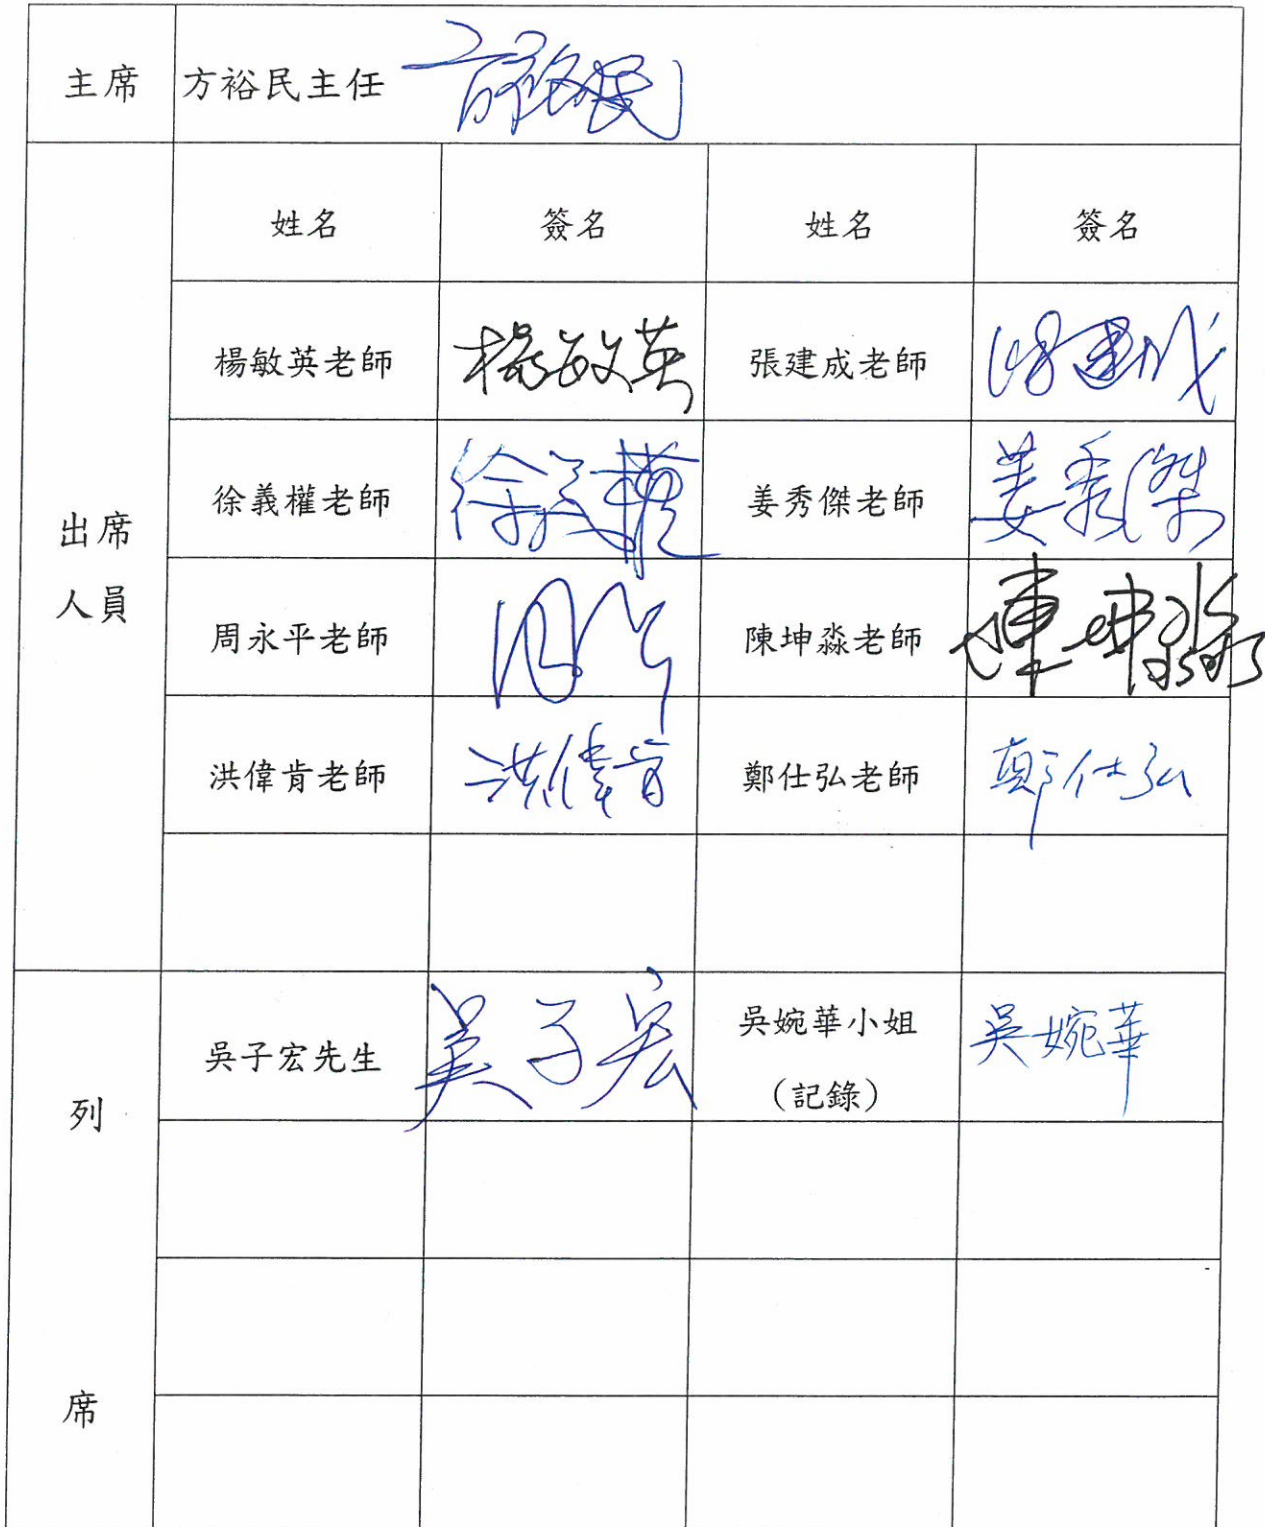 主席 方裕民主任 方裕民
姓名 簽名 姓名 簽名
楊敏英老師 楊敏英 張建成老師 張建成
徐義權老師 徐義權 姜秀傑老師 姜秀傑
出席
人員
周永平老師 陳坤淼老師 陳坤淼
洪偉肯老師 洪偉肯 鄭仕弘老師 鄭仕弘
吳子宏先生 吳子宏 吳婉華小姐 吳婉華
(記錄)
列
席